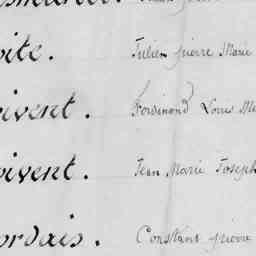 oite. Julien pierre Marie
oivent. Ferdinand Louis M
oivent. Jean Marie Joseph
ordais. Constant pierre